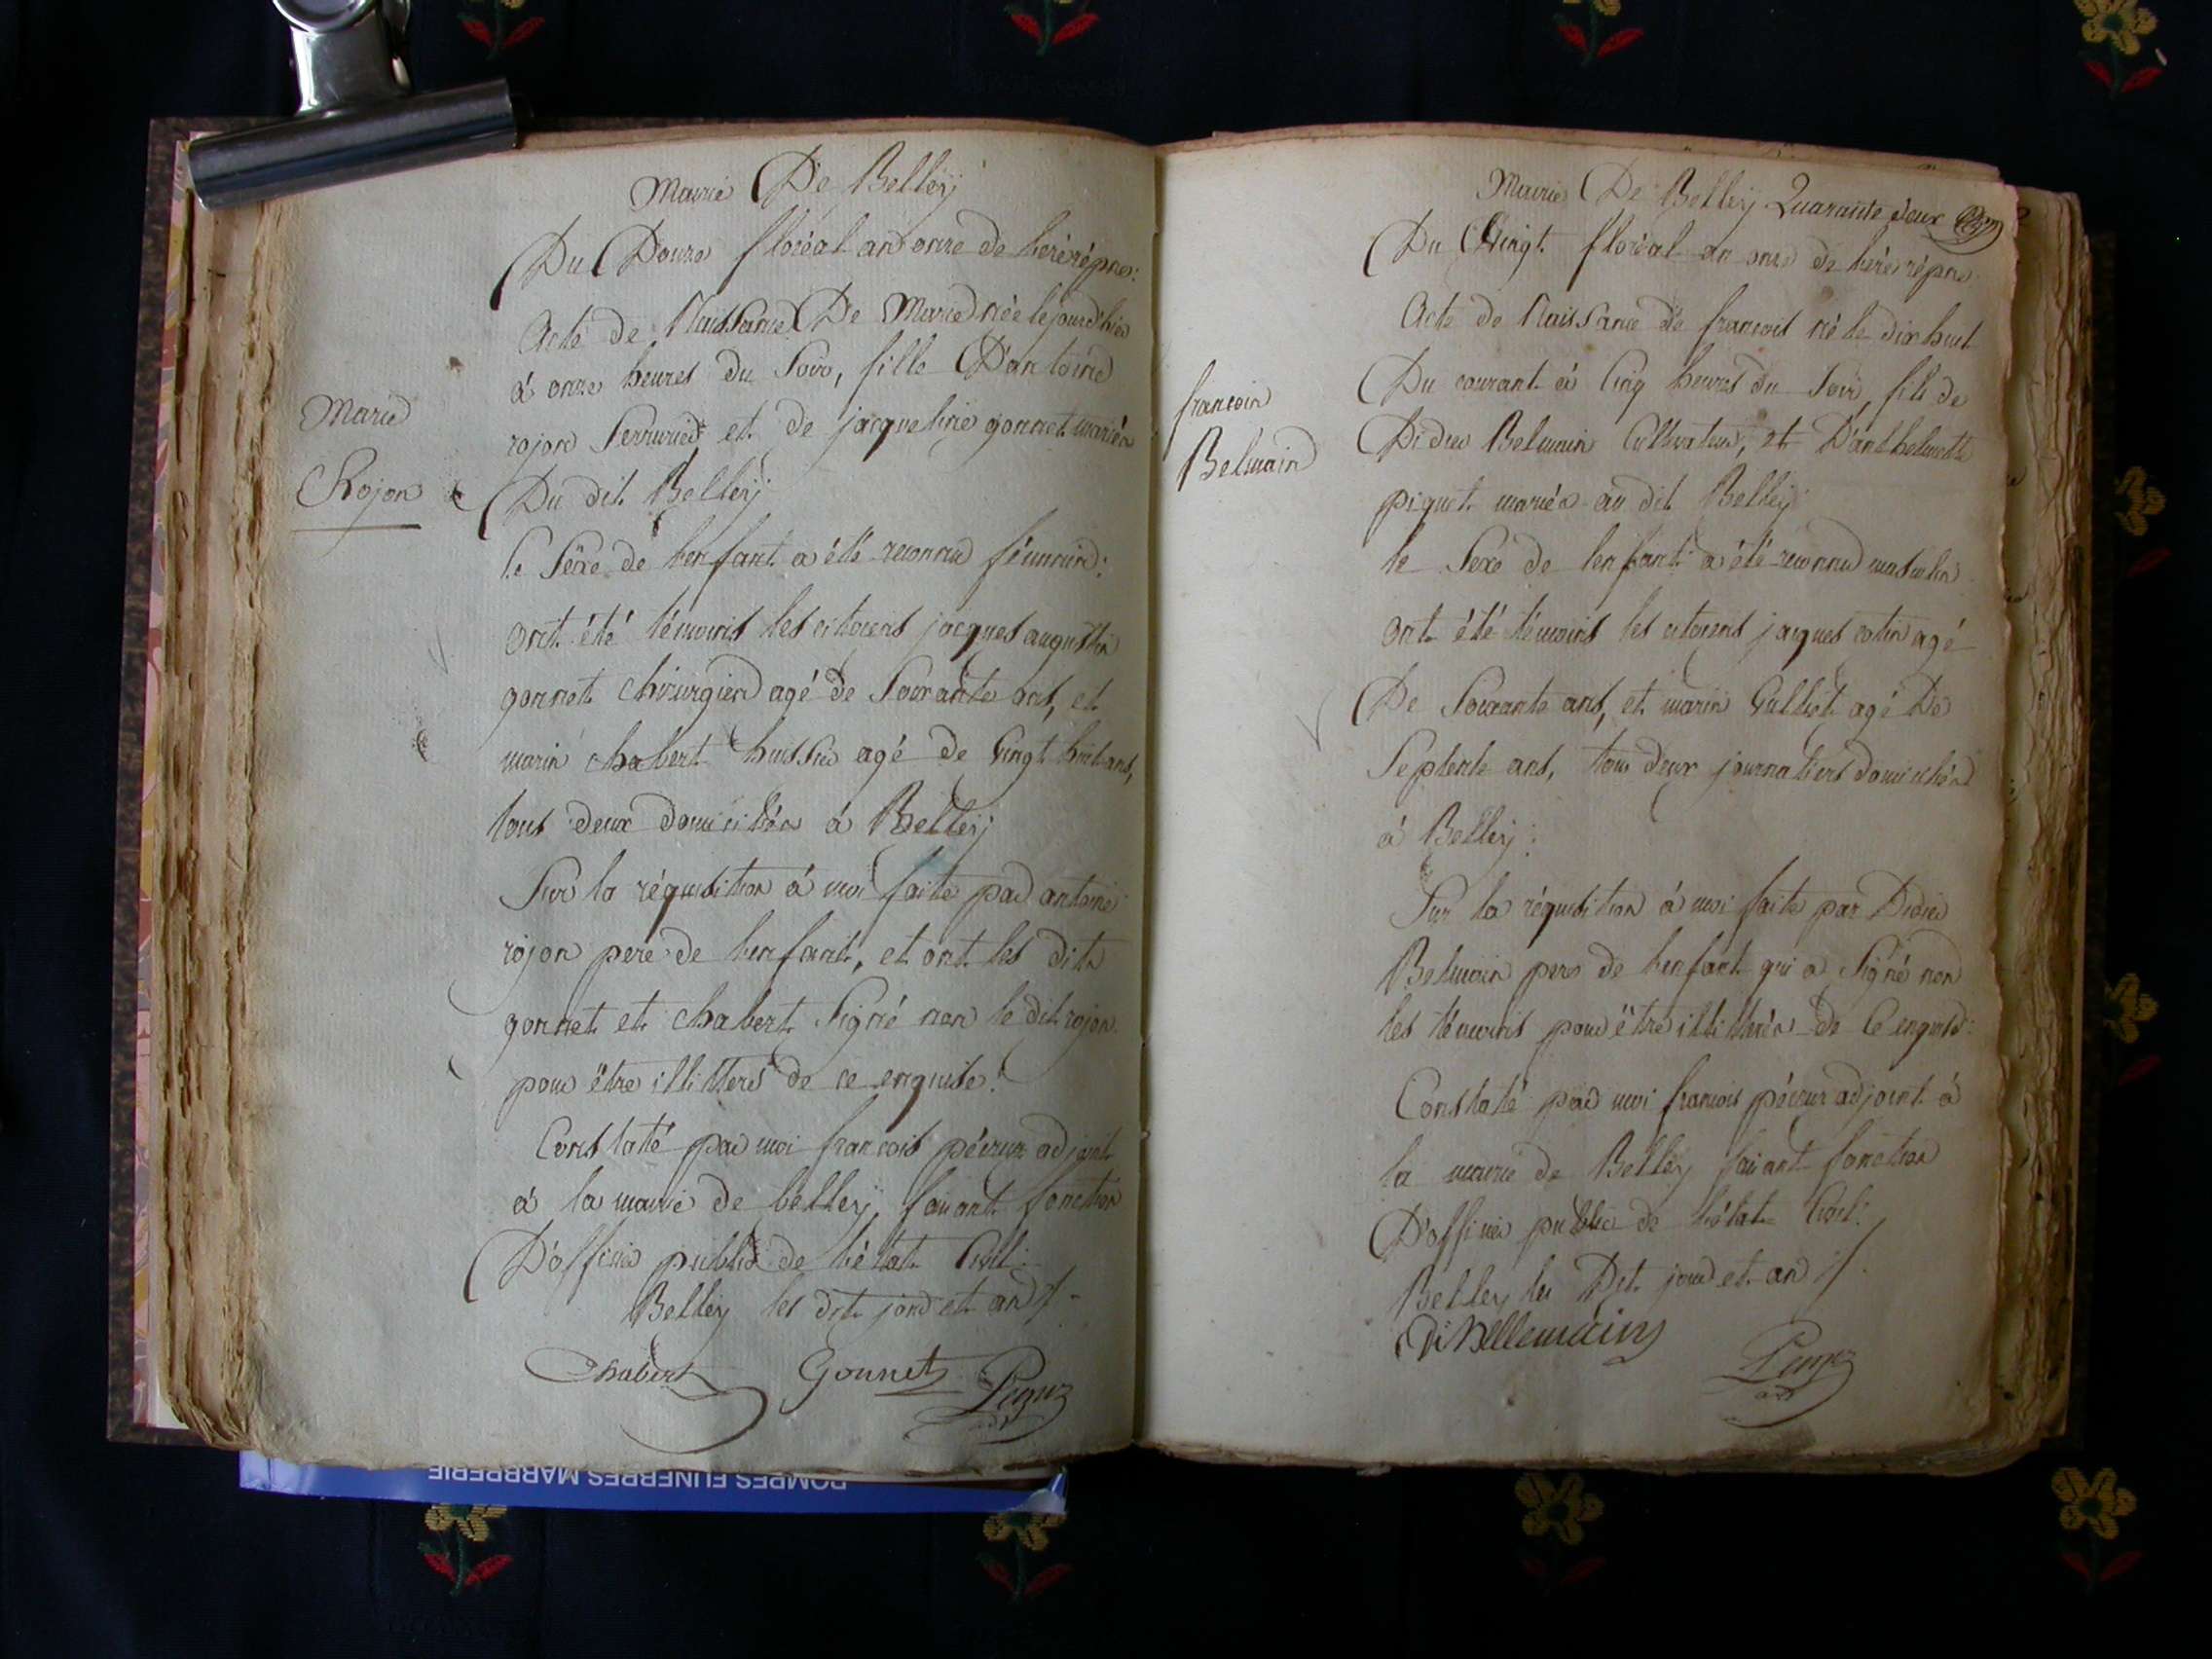 Mairie De Belleÿ
Du Douze floréal an onze de l'erérépne:
Acte de Naissance De Marie née lejourd'hier
à onze heures du Soir, fille D'antoine
rojon Serrurier et de jacqueline gonnet mariés
Du dit Belleÿ
Marie
Rojon
le Séxe de l'enfant a été reconnu féminin:
ont été témoins les citoiens jacques augustin
gonnet chirurgien agé de Soixante ans, et
marin chabert huissier agé de Vingt huit ans,
tous deux domiciliés à Belleÿ
Sur la réquisition à moi faite par antoine
rojon pere de l'enfant, et ont les dits
gonnet et chabert Signé non le dit rojon
pour être illittéré de ce enquise:
Constaté par moi francois pécruz adjoint
à la mairie de belleÿ, faisant fonction
D'officier public de l'état Civil:
Belleÿ les dit jour et an
Chabert Gonnet
adt
Mairie De Belleÿ Quarante deux
Du Vingt floréal an onze de l'ére répne
Acte de Naissance de francois né le dix huit
Du courant à Cinq heures du Soir, fils de
Didier Belmain Cultivateur, et D'anthelmette
piquet mariés au dit Belleÿ
francois
Belmain
le Sexe de l'enfant a été reconnu masculin
ont été témoins les citoiens jaques cotin agé
De Soixante ans, et marin Gulliet agé De
Septente ans, tous deux journaliers domiciliés
à Belleÿ:
Sur la réquisition à moi faite par Didier
Belmain pere de l'enfant qui a Signé non
les témoins pour être illittérés de Ce enquis:
Constaté par moi francois pécruz adjoint à
la mairie de Belleÿ faisant fonction
D'officier public de l'état Civil:
Belleÿ les Dit jour et an
Di Bellemain
adt
POMPES FUNEBRES MARBRERIE